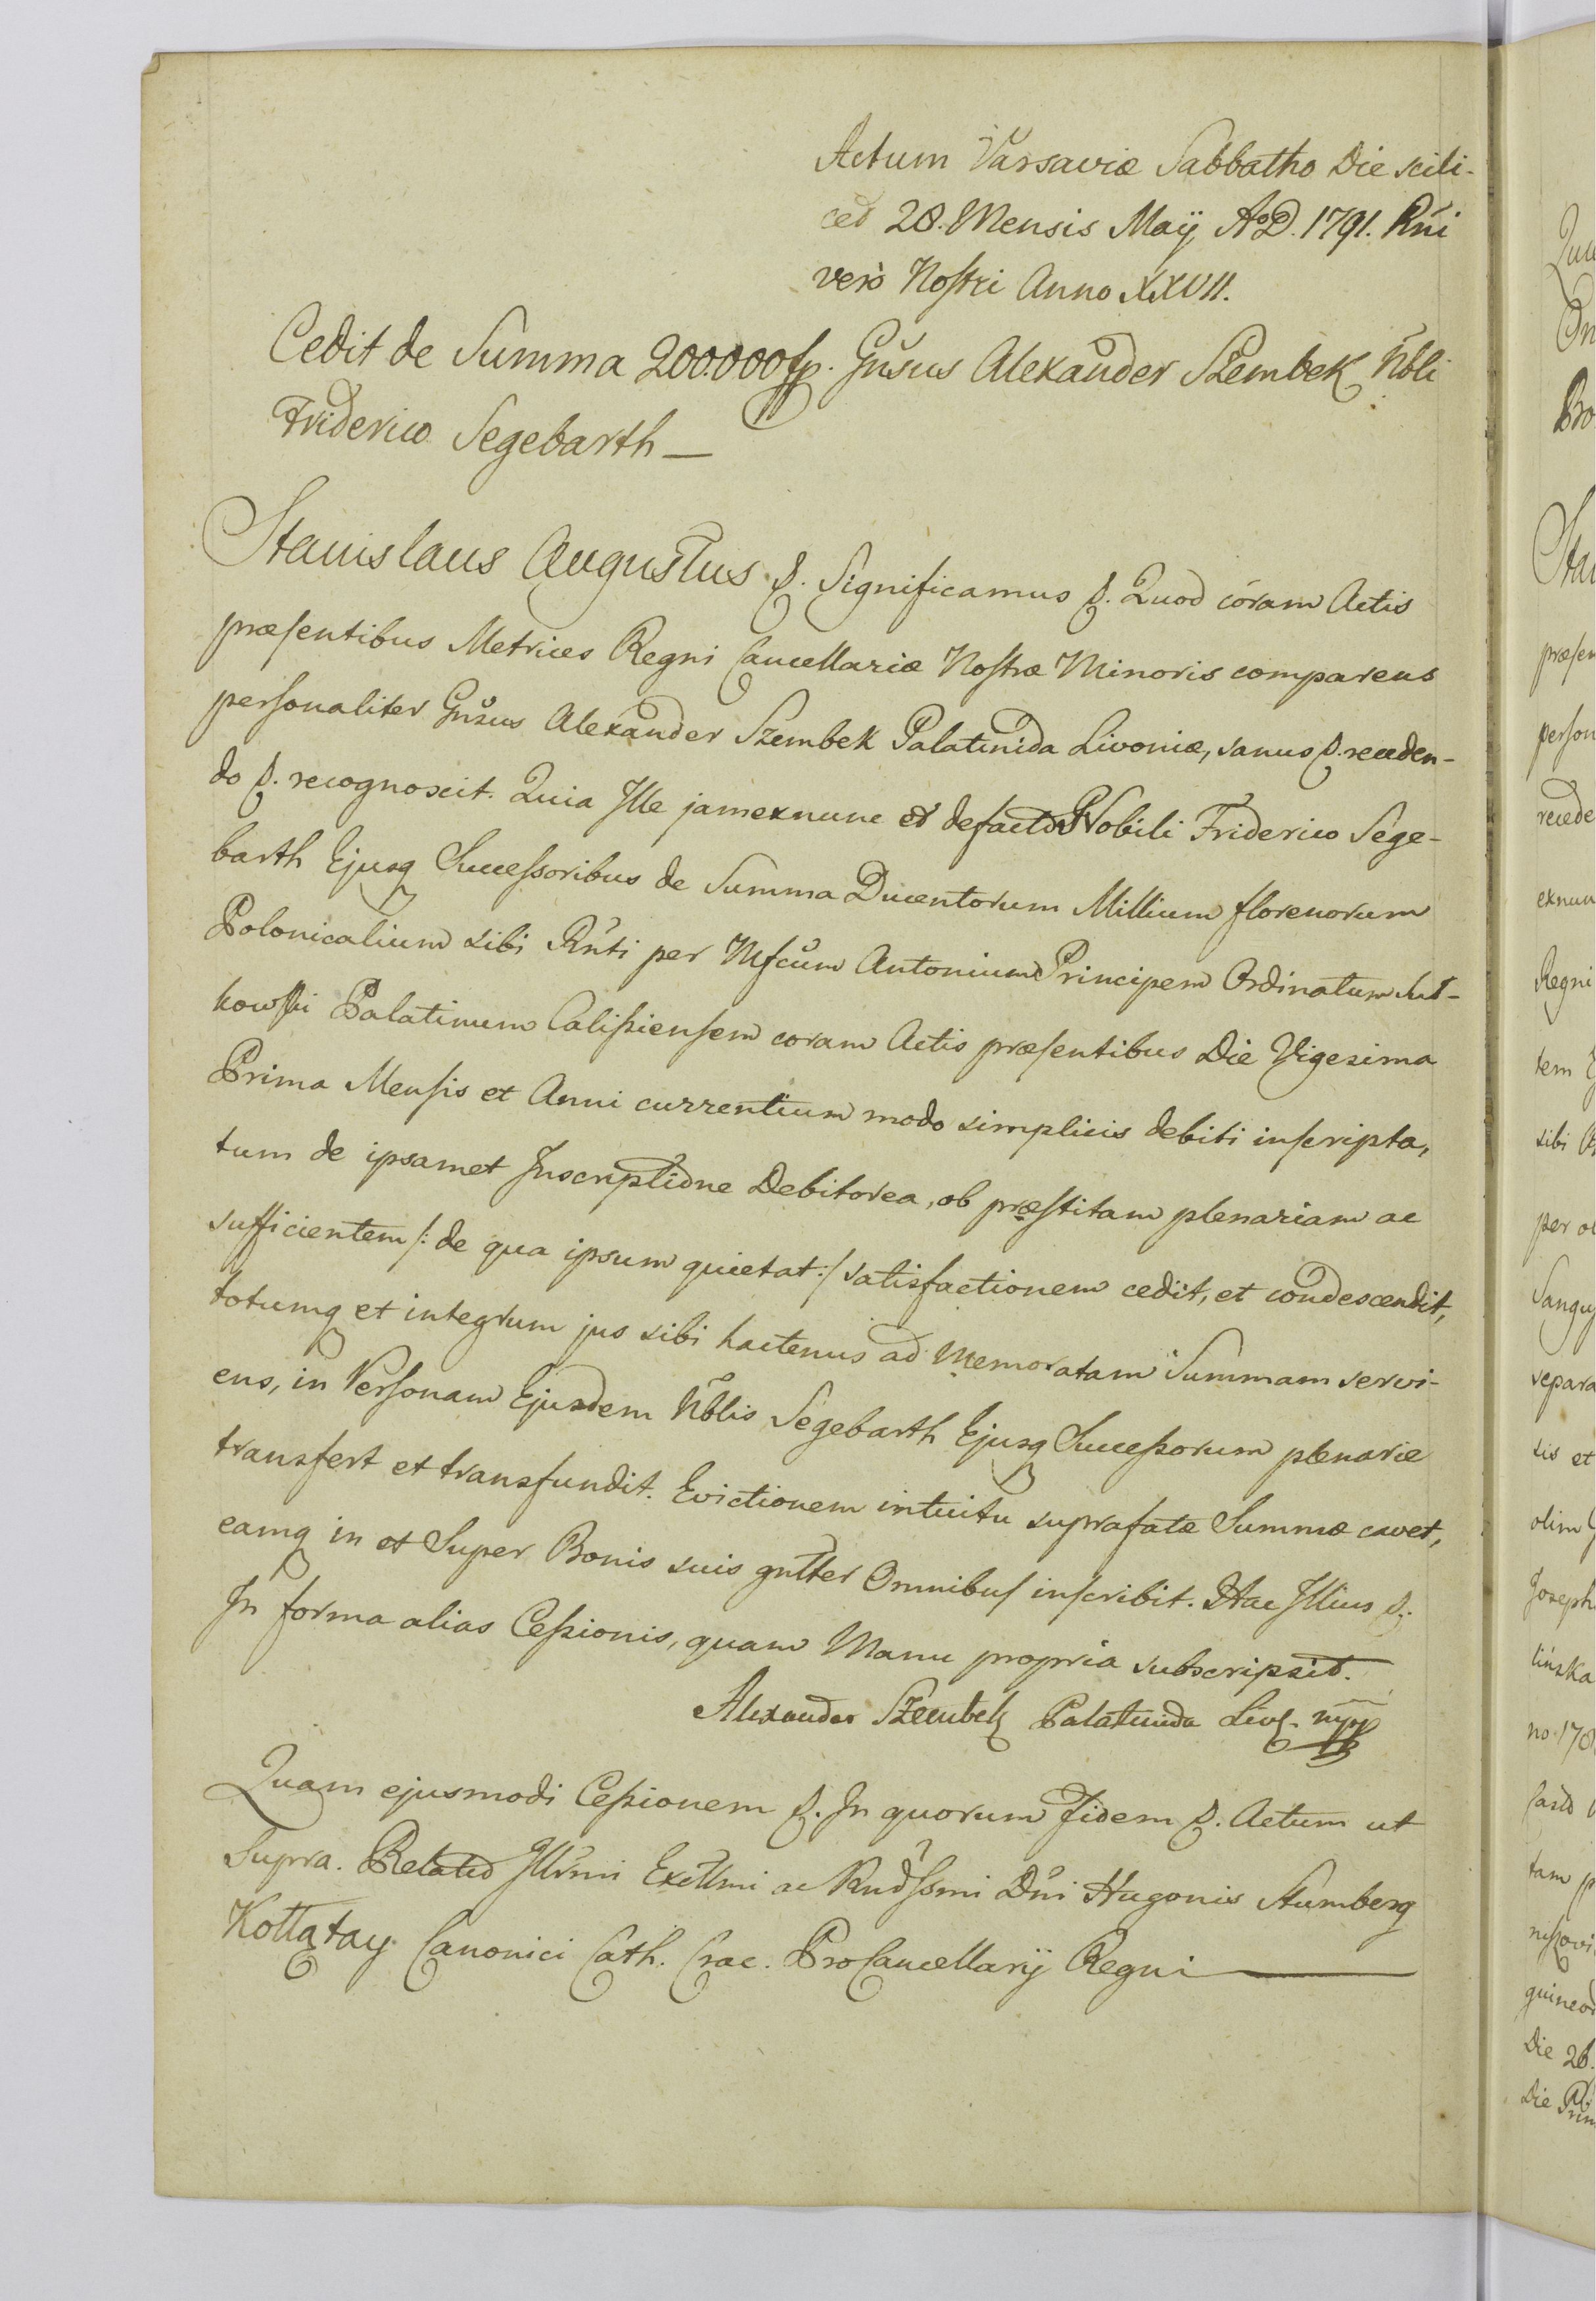 Actum Varsaviæ Sabbatho Die scili-
cet 28. Mensis Maÿ AoD. 1791. Rñi
verò Nostri Anno XXVII.
Cedit de Summa 200.000 fp. Gñsus Alexander Szembek Nbli
Friderico Segebarth —
Stanislaus Augustus &. Significamus &. Quod coram Actis
præsentibus Metrices Regni Cancellariæ Nostræ Minoris comparens
personaliter Gñsus Alexander Szembek Palatinida Livoniæ, sanus &. receden-
do &. recognoscit. Quia Ille jamexnunc et defacto Nobili Friderico Sege-
barth Ejusq Successoribus de Summa Ducentorum Millium florenorum
Polonicalium sibi Rñti per Mfcum Antonium Principem Ordinatum Suł-
kowski Palatinum Calissiensem coram Actis præsentibus Die Vigesima
Prima Mensis et Anni currentium modo simplicis debiti inscripta,
tum de ipsamet Inscriptione Debitorea, ob præstitam plenariam ac
sufficientem /: de qua ipsum quietat :/ satisfactionem cedit, et condescendit,
totumq et integrum jus sibi hactenus ad memoratam Summam servi-
ens, in Personam Ejusdem Nblis Segebarth Ejusq Successorum plenarie
transfert et transfundit. Evictionem intuitu suprafatæ Summæ cavet,
eamq in et Super Bonis suis gnlter Omnibus inscribit. Hac Illius &.
In forma alias Cessionis, quam Manu propria subscripsit.
Alexander Szembek Palatinida Livo. mpp
Quam ejusmodi Cessionem &. In quorum Fidem &. Actum ut
Supra. Relatio Illrmi Excllmi ac Rndssmi Dñi Hugonis Stumberg
Kołłątay Canonici Cath. Crac. ProCancellarij Regni —